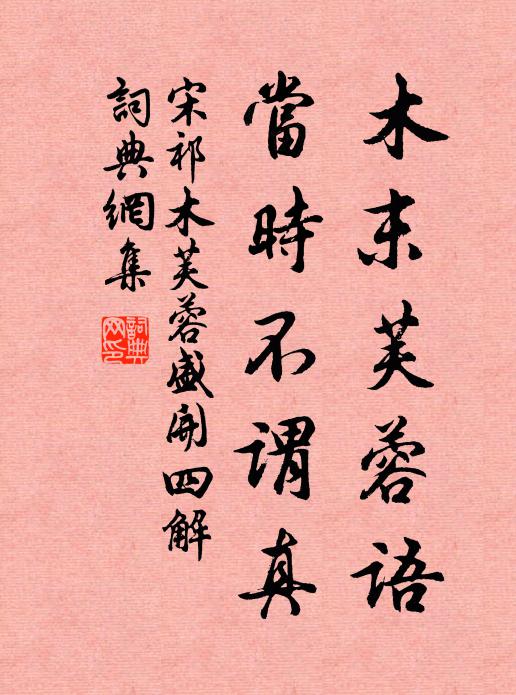 木末芙蓉語
當時不謂真
宋祁木芙蓉盛開四解
詞典網集
詞典網印